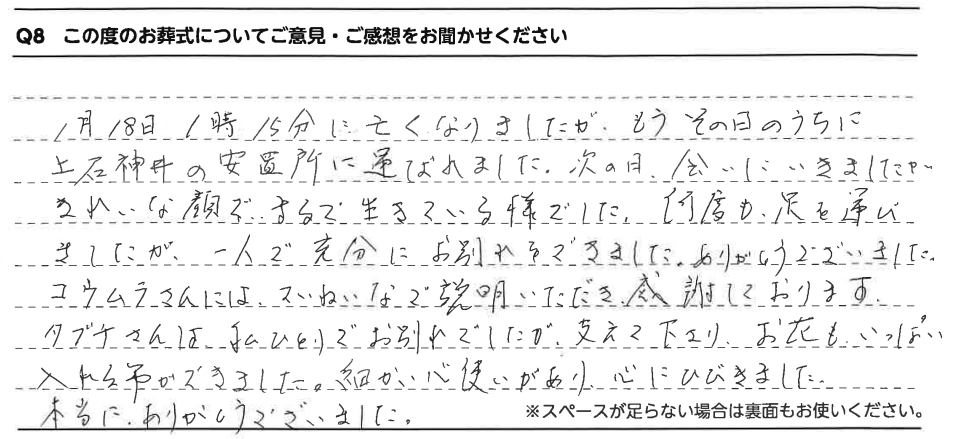 Q8 この度のお葬式についてご意見・ご感想をお聞かせください
1月18日1時15分に亡くなりましたが、もうその日のうちに
上石神井の安置所に運ばれました。次の日、会いにいきましたが
きれいな顔で、まるで生きている様でした。何度も、足を運び
ましたが、一人で充分にお別れもできました。ありがとうございました。
コウムラさんには、ていねいなご説明いただき、感謝しております。
タブチさんは私ひとりでお別れでしたが、支えて下さり、お花も、いっぱい
入れる事ができました。細かい心使いがあり、心にひびきました。
本当に、ありがとうございました。
※スペースが足らない場合は裏面もお使いください。